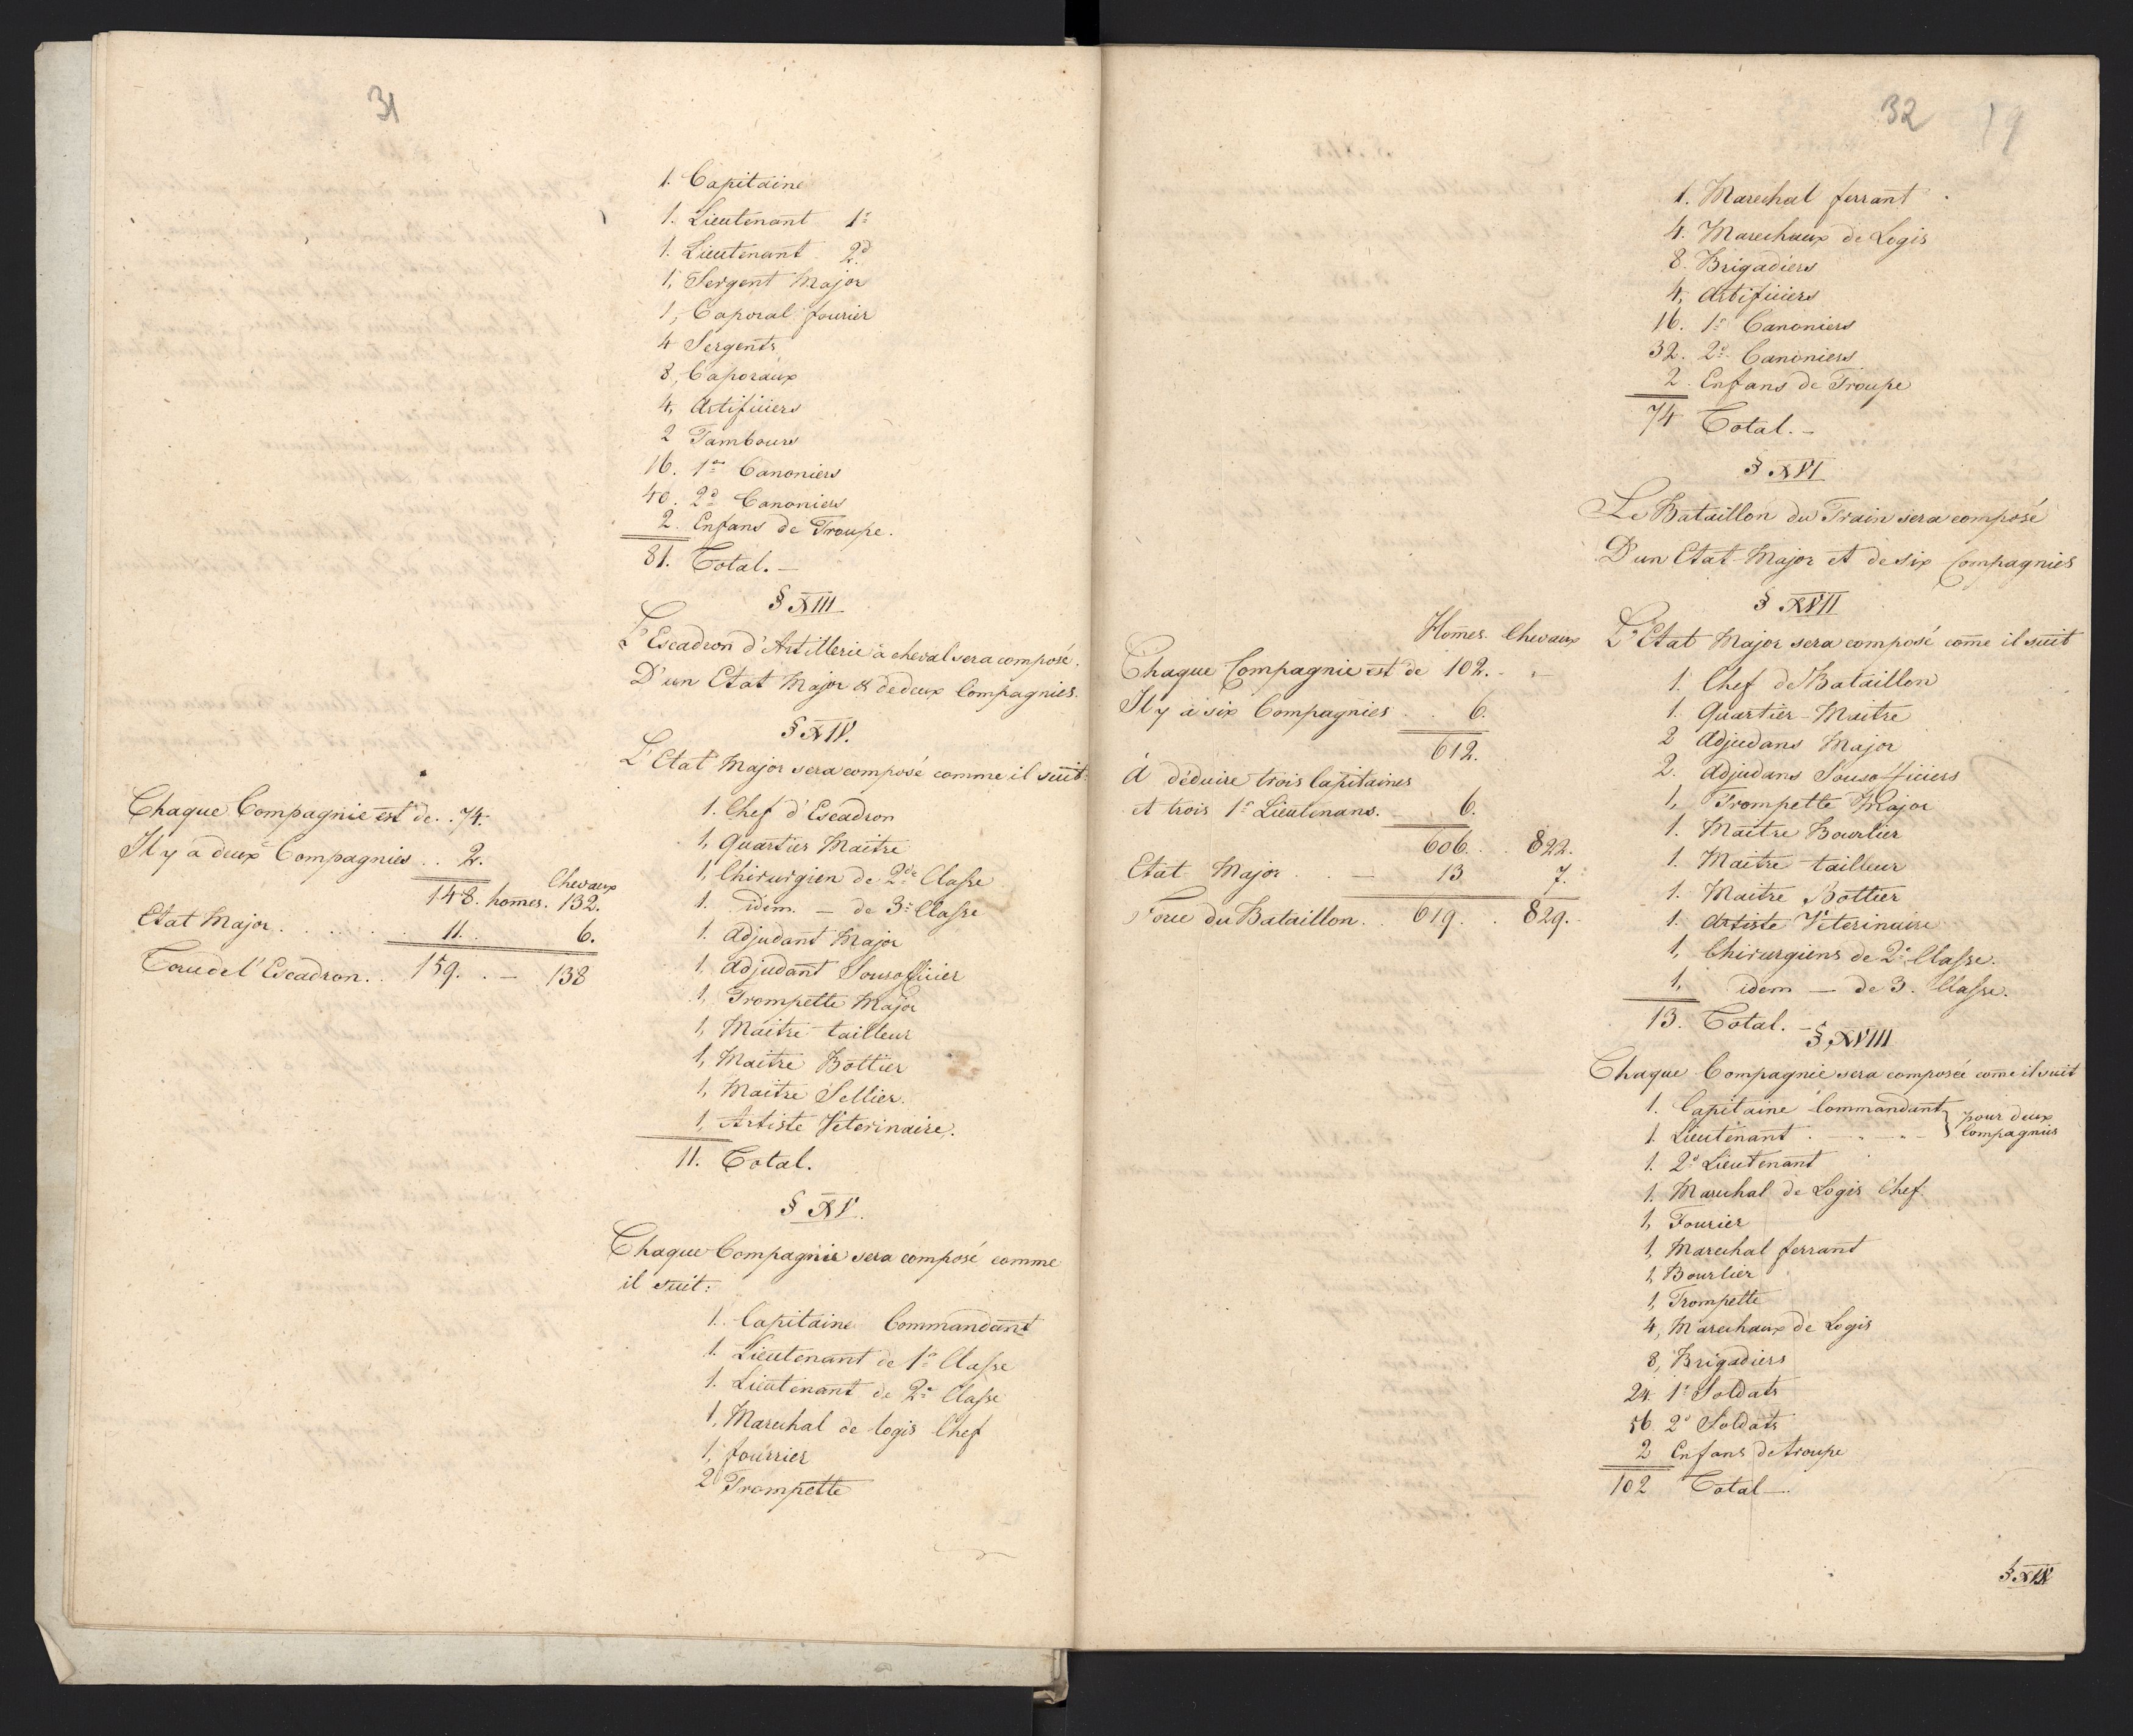 31
1. Capitaine
1. Lieutenant 1r
1. Lieutenant 2d
1, Sergent Major
1, Caporal fourier
4 Sergents
8, Caporaux
4, Artificiers
2 Tambours
16. 1ers Canoniers
40. 2ds Canoniers
2. Enfans de Troupe.
81. Total. —
§ XIII
L'Escadron d'Artillerie à cheval sera composé.
D'un Etat Major & de deux Compagnies.
§ XIV.
L'Etat Major sera composé comme il suit.
1. Chef d'Escadron
1, Quartier Maitre
1, Chirurgien de 2de Classe
1. idem. — de 3e Classe
1. Adjudant Major
1, Adjudant Sousofficier
1, Trompette Major
1, Maitre tailleur
1, Maitre Bottier
1, Maitre Sellier.
1, Artiste Veterinaire.
11. Total.
§ XV.
Chaque Compagnie sera composé comme
il suit:
1. Capitaine Commandant
1. Lieutenant de 1e Classe
1. Lieutenant de 2e Classe
1, Marechal de logis Chef
1, fourrier
2 Trompette
Chaque Compagnie est de . . 74.
Il y a deux Compagnies . . 2.
Chevaux
148. homes. 132.
Etat Major . . . . . 11. 6.
Force de l'Escadron . . 159. . — 138
32 19
1. Marechal ferrant
4. Marechaux de Logis
8. Brigadiers
4, Artificiers
16. 1rs Canoniers
32. 2ds Canoniers
2. Enfans de Troupe
74 Total. —
§ XVI
Le Bataillon du Train sera composé
D'un Etat-Major et de six Compagnies
§ XVII
L'Etat Major sera composé come il suit
1. Chef de Bataillon
1. Quartier-Maitre
2 Adjudans Major
2. Adjudans Sousofficiers
1, Trompette Major
1. Maitre Bourlier
1. Maitre tailleur
1. Maitre Bottier
1. Artiste Veterinaire
1, Chirurgiens de 2e Classe.
1, idem — de 3. Classe.
13. Total. —
§ XVIII
Chaque Compagnie sera composée come il suit
1. Capitaine Commandant } pour deux
1. Lieutenant . — . — . — } Compagnies
1. 2d Lieutenant
1. Marechal de Logis Chef.
1, Fourier
1, Marechal ferrant
1, Bourlier
1, Trompette
4, Marechaux de Logis
8, Brigadiers
24. 1rs Soldats
56. 2ds Soldats
2 Enfans de troupe
102 Total —.
§ XIX
Homes. Chevaux
Chaque Compagnie est de 102. - -
Il y a six Compagnies . . 6.
612.
A déduire trois Capitaines
et trois 1rs Lieutenans. . 6.
606. . 822.
Etat Major . . — 13 7.
Force du Bataillon. . 619. . 829.